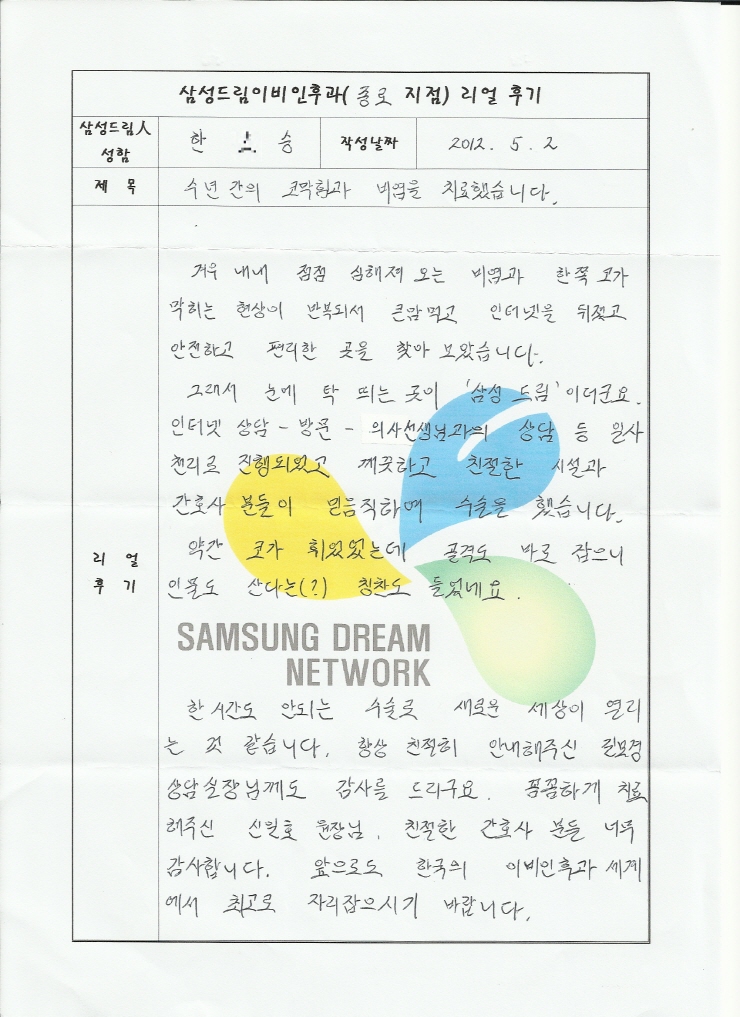 삼성드림이비인후과(종로 지점) 리얼 후기
삼성드림人 성함
한 승
작성날짜
2012. 5. 2
제 목
수년 간의 코막힘과 비염을 치료했습니다.
리 얼 후 기
겨우 내내 점점 심해져 오는 비염과 한쪽 코가
막히는 현상이 반복되서 큰맘먹고 인터넷을 뒤젔고
안전하고 편리한 곳을 찾아 보았습니다.
그래서 눈에 탁 띄는 곳이 '삼성 드림' 이더군요.
인터넷 상담 - 방문 - 의사선생님과의 상담 등 일사
천리로 진행되었고 깨끗하고 친절한 시설과
간호사 분들이 믿음직하며 수술을 했습니다.
약간 코가 휘었었는데 골격도 바로 잡으니
인물도 산다는(?) 칭찬도 들었네요.
SAMSUNG DREAM
NETWORK
한시간도 안되는 수술로 새로운 세상이 열리
는 것 같습니다. 항상 친절히 안내해주신
상담실장님께도 감사를 드리구요. 꼼꼼하게 치료
해주신 신일호 원장님, 친절한 간호사 분들 너무
감사합니다. 앞으로도 한국의 이비인후과 세계
에서 최고로 자리잡으시기 바랍니다.